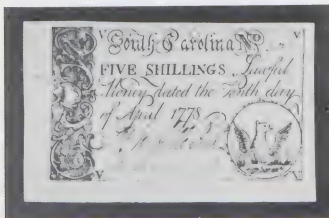 V South Carolina No. V
FIVE SHILLINGS Lawful
Money dated the Tenth day
of April 1778
V V